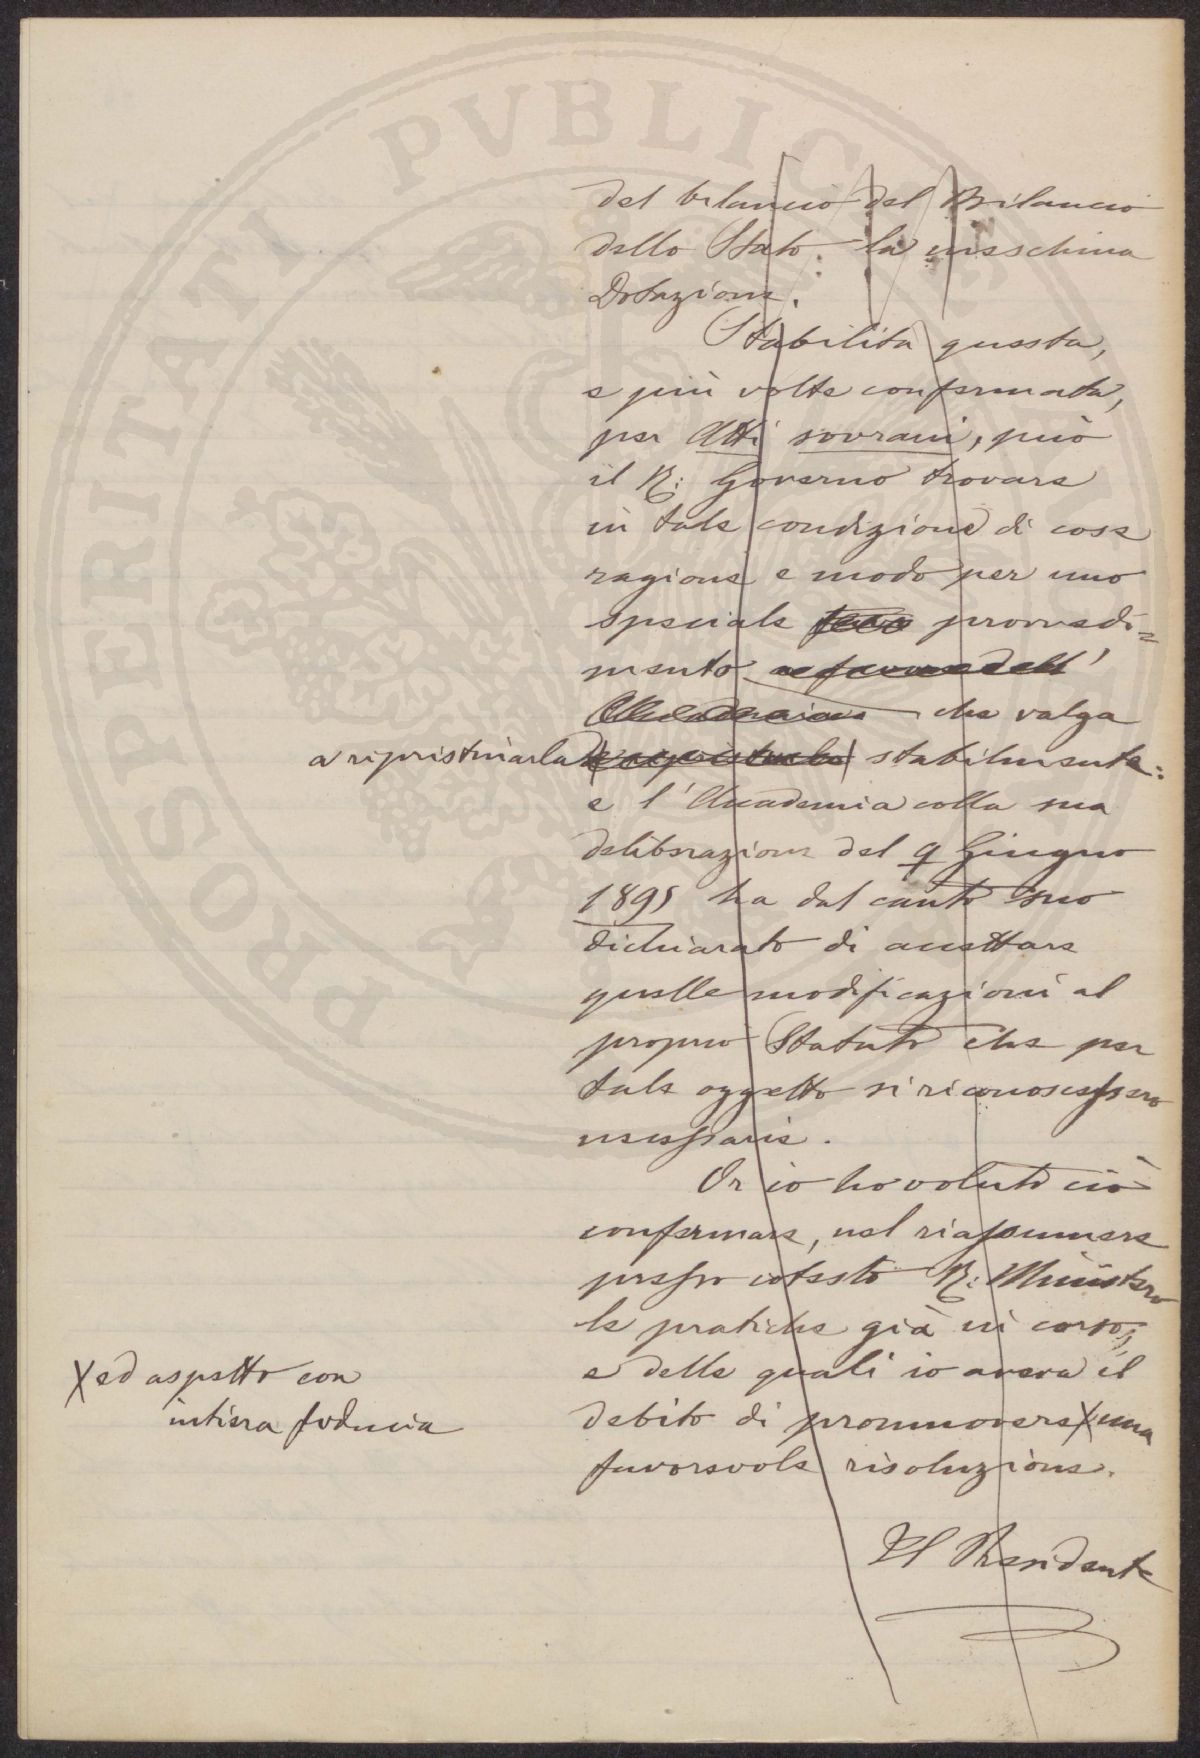 del bilancio del Bilancio
dello Stato la meschina
Dotazione.
Stabilita questa,
e più volte confermata,
per Atti sovrani, può
il R: Governo trovare
in tale condizione di cose
ragione e modo per uno
speciale provvedi=
mento a favore dell'
Accademia che valga
a ripristinarla stabilmente:
e l'Accademia colla sua
deliberazione del 9 Giugno
1895 ha dal canto suo
dichiarato di accettare
quelle modificazioni al
proprio Statuto che per
tale oggetto si riconoscessero
necessarie.
Or io ho voluto ciò
confermare, nel riassumere
presso cotesto R: Ministero
le pratiche già in corso,
e delle quali io aveva il
debito di promuovere X una
X ed aspetto con
intiera fiducia
favorevole risoluzione.
Il Presidente
PROSPERITATI PVBLICAE